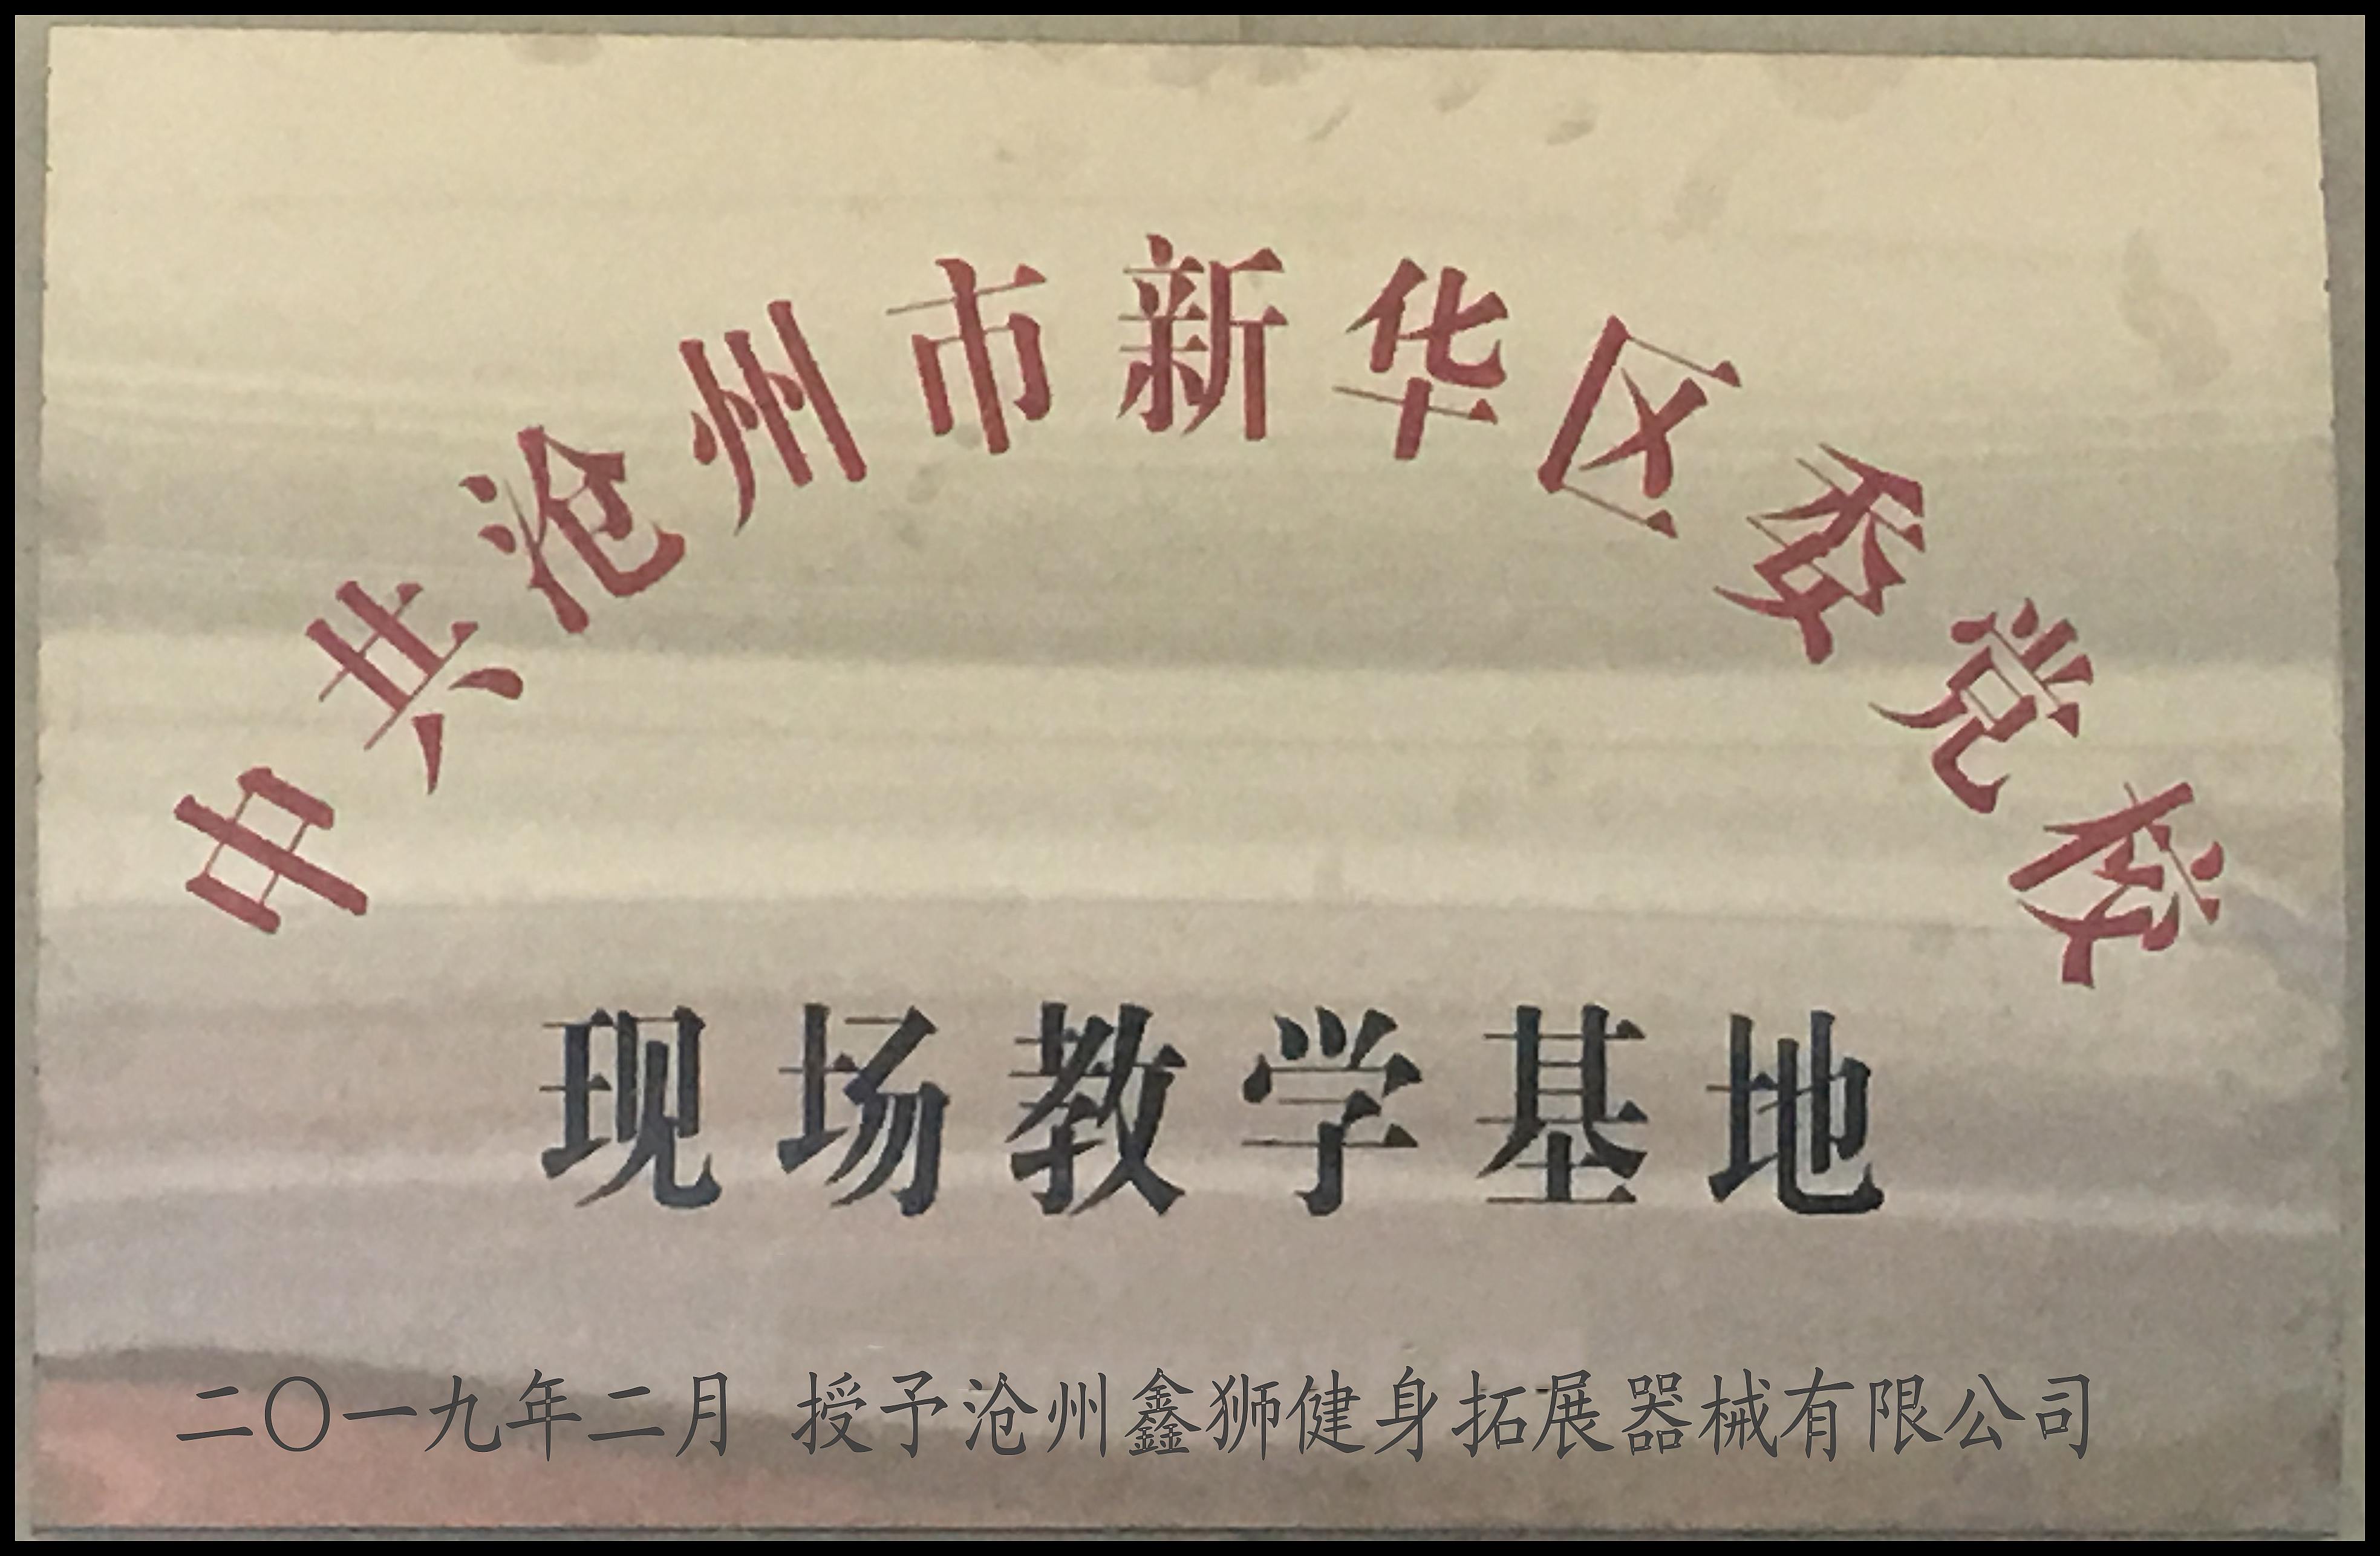 中共沧州市新华区委党校
现场教学基地
二〇一九年二月 授予沧州鑫狮健身拓展器械有限公司